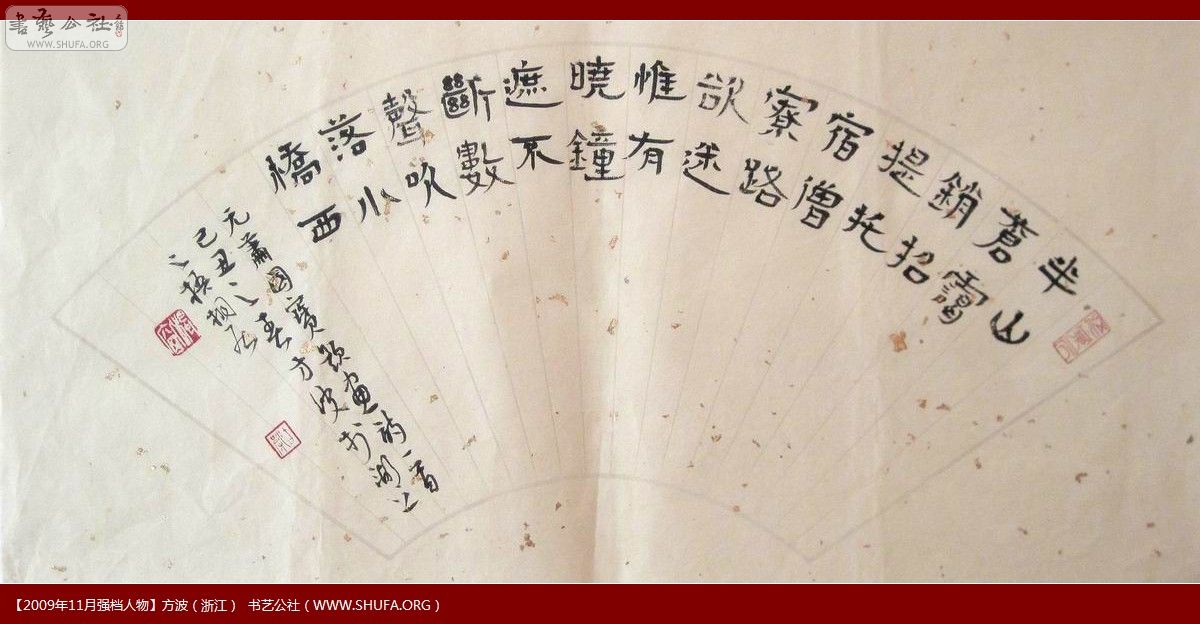 書藝公社
WWW.SHUFA.ORG
半山
蒼靄
銷招
提托
宿僧
寮路
欲迷
惟有
曉鐘
遮不
斷數
聲吹
落小
橋西
元蕭國寶題畫詩一首
己丑之春方波於湖上
【2009年11月强档人物】方波（浙江） 书艺公社（WWW.SHUFA.ORG）